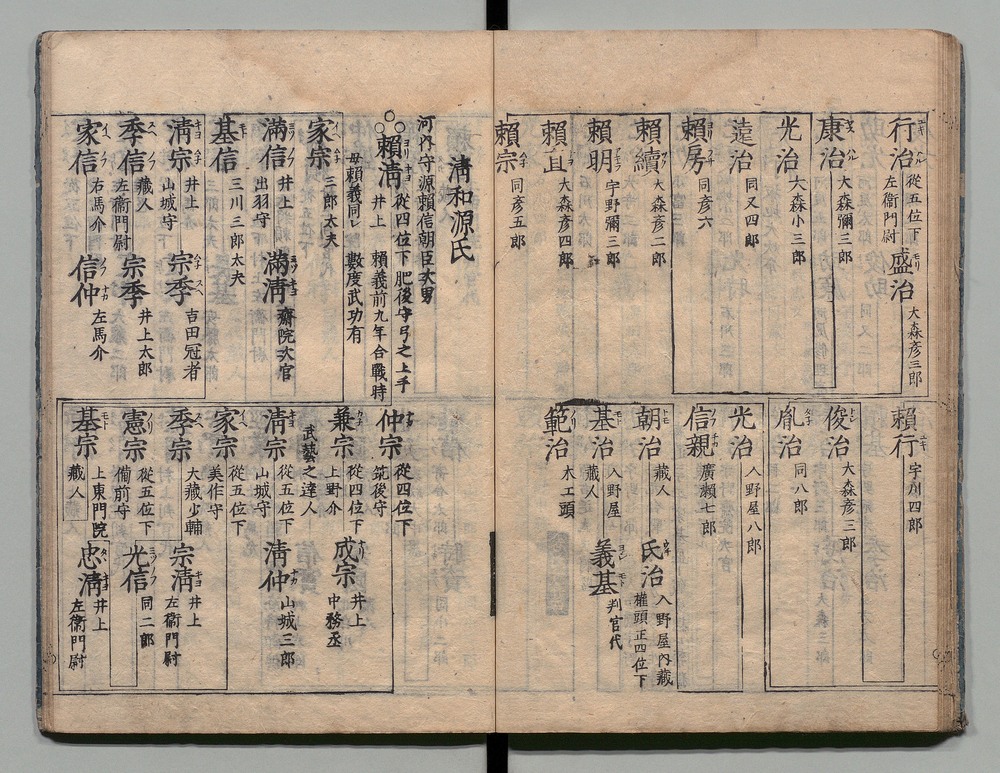 行治 從五位下 左衞門尉
盛治 大森彦三郎
康治 大森彌三郎
光治 大森小三郎
遠治 同又四郎
賴房 同彦六
賴續 大森彦二郎
賴明 宇野彌三郎
賴且 大森彦四郎
賴宗 同彦五郎
賴行 宇川四郎
俊治 大森彦三郎
胤治 同八郎
光治 入野屋八郎
信親 廣瀬七郎
朝治 藏人
氏治 入野屋内藏權頭正四位下
基治 入野屋 藏人
義基 判官代
範治 木工頭
淸和源氏
河內守源賴信朝臣次男
賴淸 從四位下肥後守弓之上手
井上 賴義前九年合戰時
母賴義同レ 數度武功有
家宗 三郎太夫
滿信 井上 出羽守
滿淸 齋院次官
基信 三川三郎太夫
淸宗 井上 山城守
宗季 吉田冠者
季信 藏人 左衞門尉
宗季 井上太郎
家信 右馬介
信仲 左馬介
仲宗 從四位下 筑後守
兼宗 從四位下 上野介
成宗 井上 中務丞
武藝之達人
淸宗 從五位下 山城守
淸仲 山城三郎
家宗 從五位下 美作守
季宗 大藏少輔
宗淸 井上 左衞門尉
憲宗 從五位下 備前守
光信 同二郎
基宗 上東門院 藏人
忠淸 井上 左衞門尉